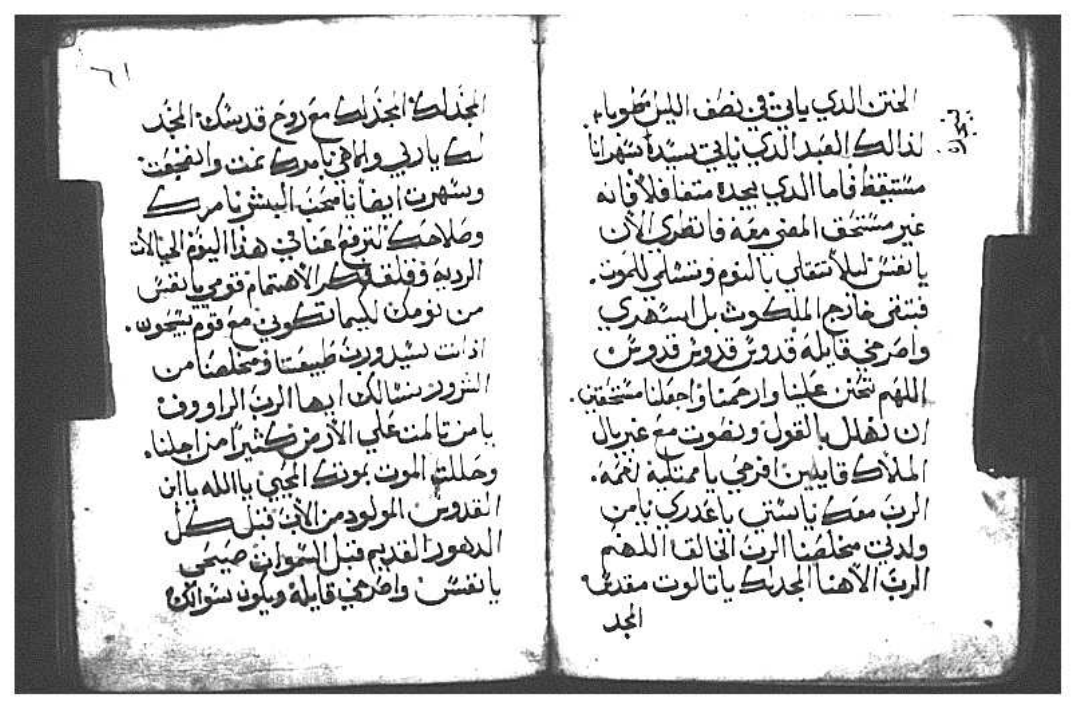 الختن الدي ياتي في نصف الليل طوبا
لدالك العبد الدي ياتي سيده سهرانا
مستيقظ فاما الدي يجده متغافلا فانه
غير مستحق المضي معه فانظري الان
يا نفس ليلا تتقلي بالنوم وتسلمي للموت.
فتبقي خارج الملكوت بل اسهري
واصرخي قايله قدوس قدوس قدوس
اللهم تحنن علينا وارحمنا واجعلنا مستحقين.
ان نهلل بالقول ونصوت مع غبريال
الملاك قايلين افرحي يا ممتليه نعمه.
الرب معك يا ستي يا عدري يا من
ولدتي مخلصنا الرب الخالق اللهم
الرب الاهنا المجد لك يا تالوت مقدس
المجد
٦١
المجد لك المجد لك مع روح قدسك المجد
لك يا ربي والاهي بامرك نمت واضجعت
وسهرت ايضا يا محب البشر بامرك
وصلاحك لترفع عنا في هذا اليوم الخيالات
الرديه وفكر الاهتمام قومي يا نفس
من نومك لكيما تكوني مع قوم يسبحون.
اذ انت سيد ورب طبيعتنا ومخلصنا من
الشرور نسالك ايها الرب الراووف
يا من تالمت علي الارض كثيرا من اجلنا.
وحللت الموت بموتك المحيي يا الله يا ابن
القدوس المولود من الاب قبل كل
الدهور القديم قبل السموات صيحي
يا نفس واصرخي قايله ويكون سوالك